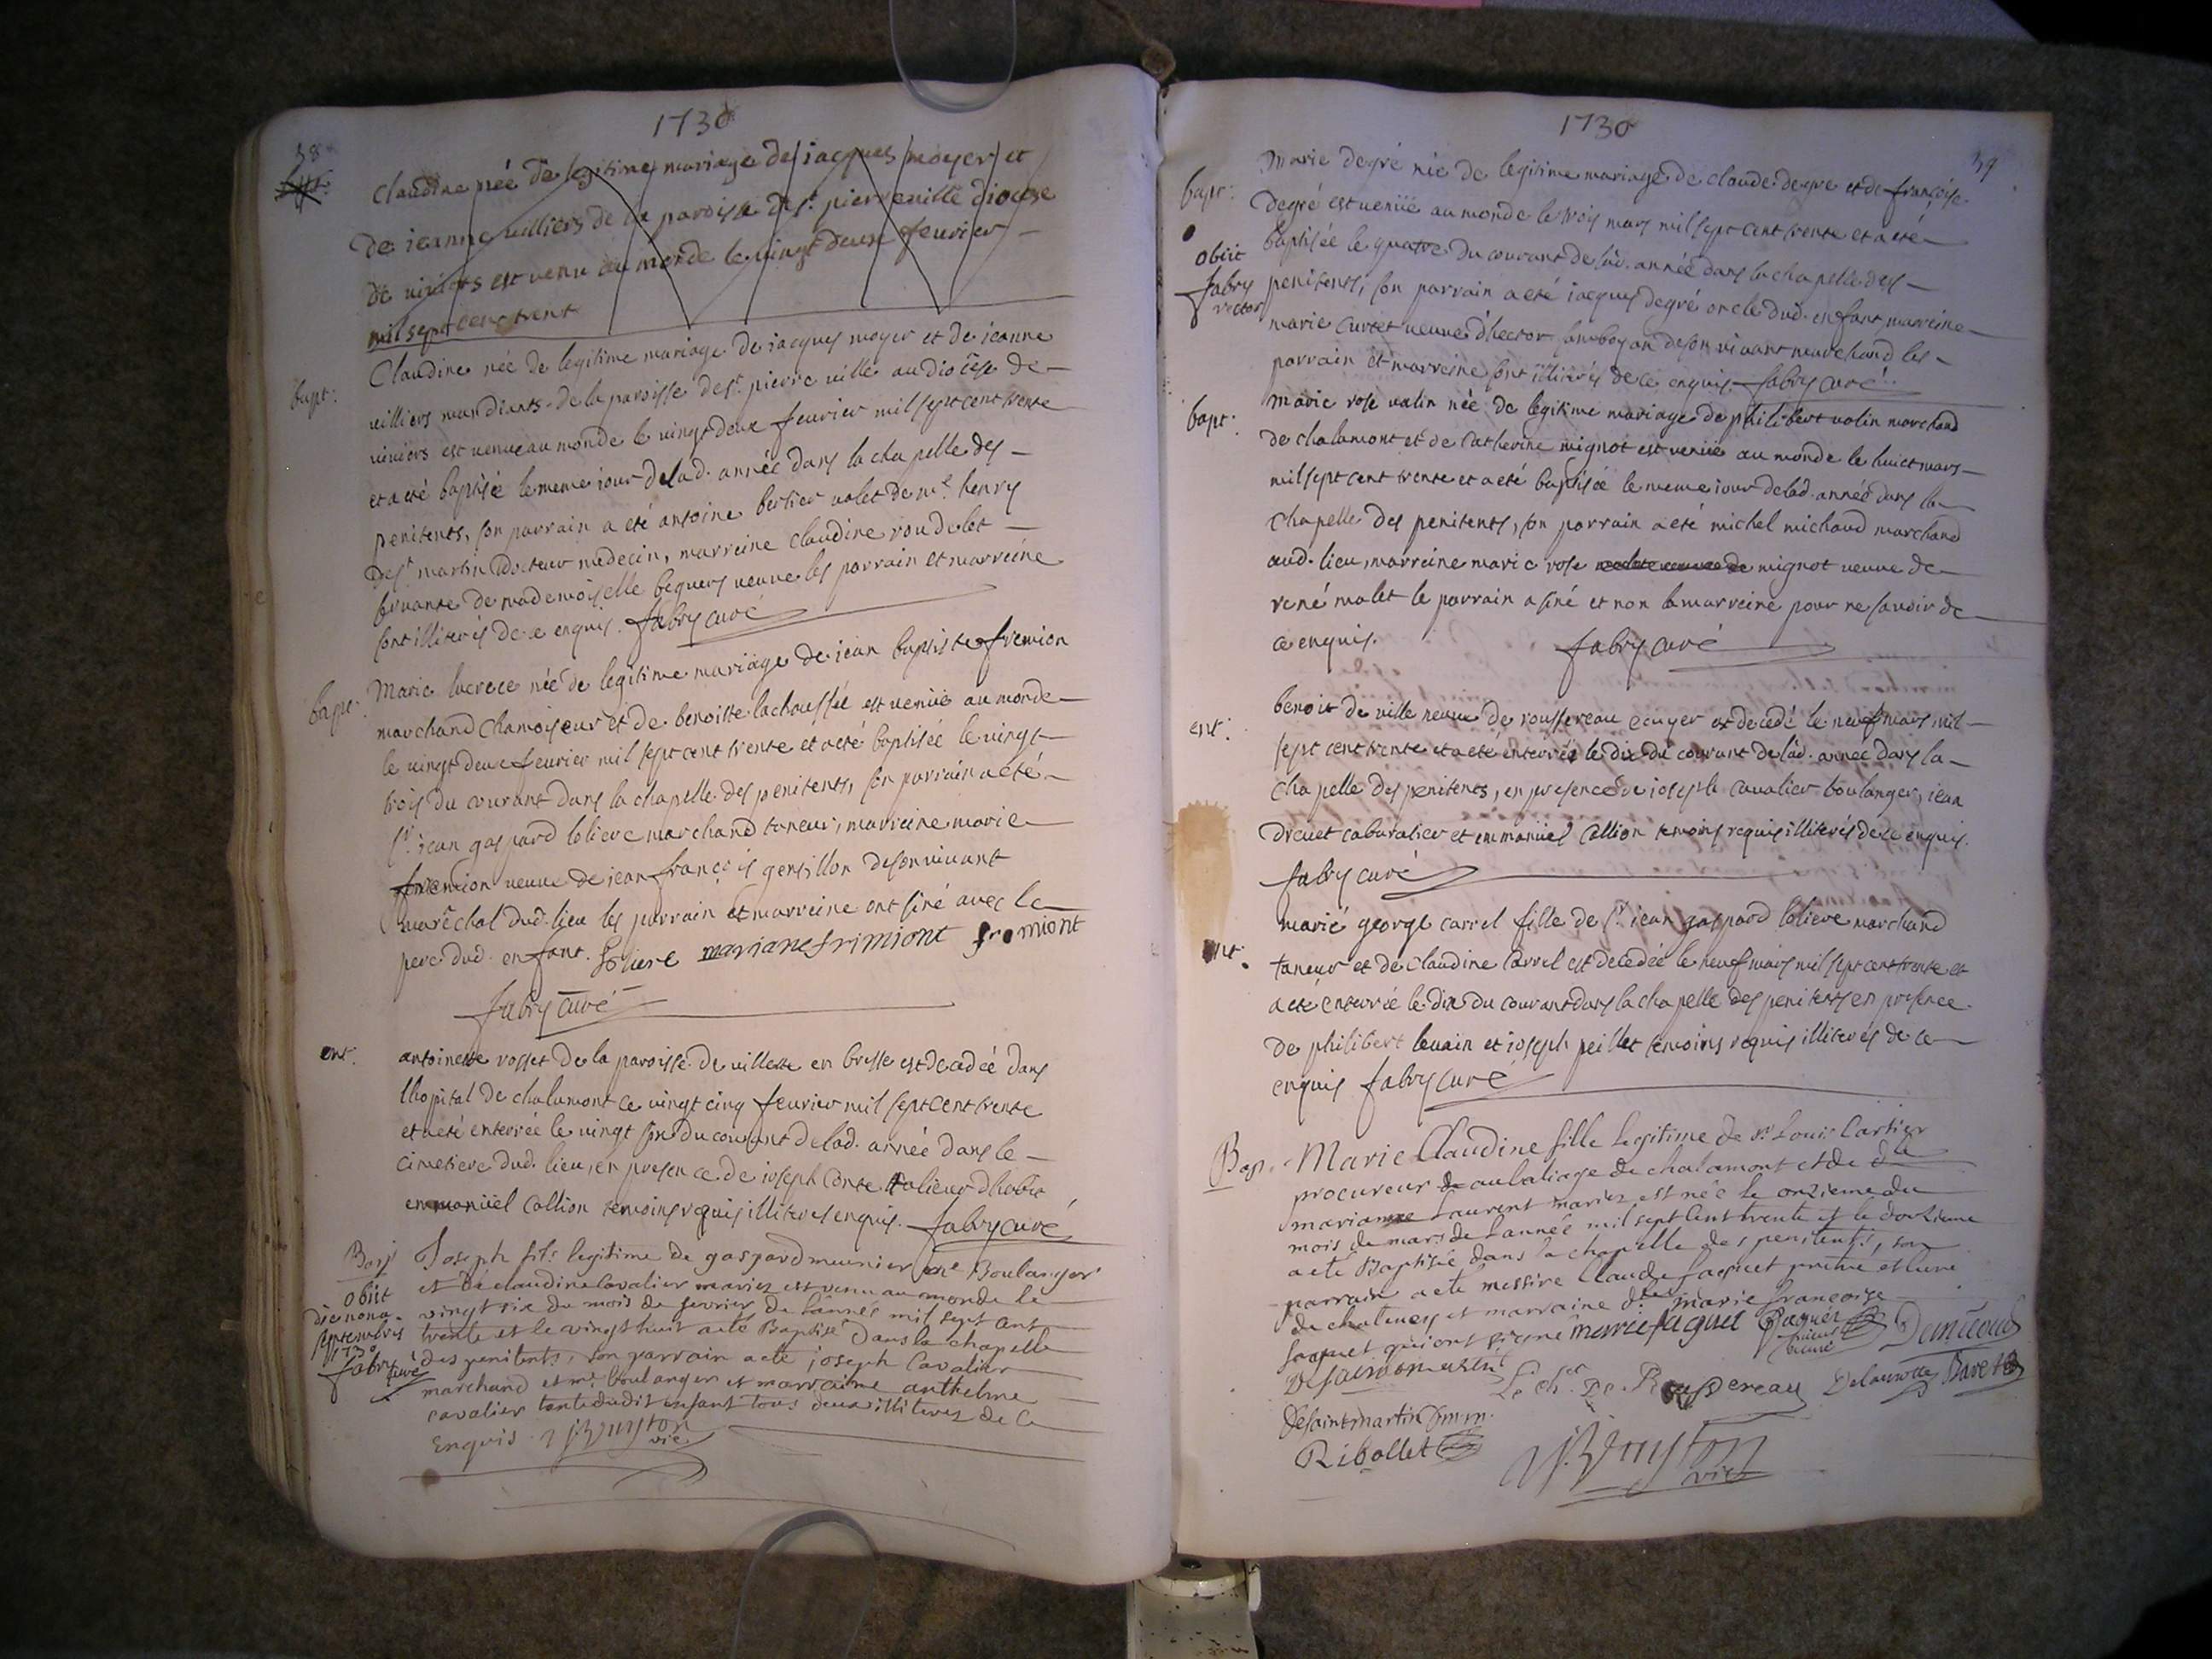 1730
38
Claudine née de legitime mariage de jacques moyer et
de jeanne villiers de la paroisse de st. pierreville diocese
de viviers est venu au monde le vingt deux feurier
mil sept cens trent
bapt:
Claudine née de legitime mariage de jacques moyer et de jeanne
villiers mandiants de la paroisse de st. pierre ville au diocese de
viviers est venue au monde le vingt deux feurier mil sept cent trente
et a eté baptisée le meme jour de lad. année dans la chapelle des
penitents, son parrain a eté antoine bertier valet de mr. henry
de st martin docteur medecin, marreine claudine roudelet
servante de mademoiselle bequers veuve les parrain et marreine
sont illiterés de ce enquis. fabry curé
bapt:
Marie lucrece née de legitime mariage de jean baptiste fremion
marchand chamoiseur et de benoitte lachaussée est venüe au monde
le vingt deux feurier mil sept cent trente et a eté baptisée le vingt
trois du courant dans la chapelle des penitents, son parrain a eté
sr. jean gaspard loliere marchand taneur, marreine marie
fremion veuve de jean françois gensillon de son vivant
maréchal dud. lieu les parrain et marreine ont siné avec le
pere dud. enfant. loliere mariane frimiont fromiont
fabry curé
ent.
antoinette rosset de la paroisse de villette en bresse est decedée dans
lhopital de chalamont ce vingt cinq feurier mil sept cent trente
et a eté enterrée le vingt six du courant de lad. année dans le
cimetiere dud. lieu, en presence de joseph conte talieur dhabit
emmanüel collion temoins requis illiterés enquis. fabry curé
Bap
obiit
die nona
septembris
1730
fabry curé
Joseph fils legitime de gaspard meunier me Boulanger
et de claudine Cavalier mariez est venu au monde le
vingt six du mois de fevrier de lannée mil sept cent
trente et le vingt huit a eté Baptisé dans la chapelle
des penitents, son parrain a eté joseph Cavalier
marchand et me. boulanger et marraine anthelme
cavalier tante dudit enfant tous deux illiterez de ce
Enquis
vic
1730
39
bapt:
obiit
fabry
rector
Marie degré née de legitime mariage de claude degré et de françoise
degré est venüe au monde le trois mars mil sept cent trente et a eté
baptisée le quatre du courant de lad. année dans la chapelle des
penitents, son parrain a eté jacques degré oncle dud. enfant marreine
marie curtet veuve d'hector samboyan de son vivant marchand les
parrain et marreine sont illiterés de ce enquis fabry curé
bapt:
Marie rose valin née de legitime mariage de philibert valin marchand
de chalamont et de catherine mignot est venüe au monde le huict mars
mil sept cent trente et a eté baptisée le meme jour de lad. année dans la
chapelle des penitents, son parrain a eté michel michaud marchand
aud. lieu, marreine marie rose mignot veuve de
rené malet le parrain a siné et non la marreine pour ne savoir de
ce enquis. fabry curé
ent:
benoit de ville neuve de roussereau ecuyer est decedé le neuf mars mil
sept cent trente et a eté enterré le dix du courant de lad. année dans la
chapelle des penitents, en presence de joseph cavalier boulanger, jean
dreuet cabaratier et emmanüel collion temoins requis illiterés de ce enquis.
fabry curé
ent:
marie george carrel fille de sr. jean gaspard loliere marchand
taneur et de claudine carrel est decedée le neuf mars mil sept cent trente et
a eté enterrée le dix du courant dans la chapelle des penitents en presence
de philibert levain et joseph peillet temoins requis illiterés de ce
enquis fabry curé
Bap.
Marie Claudine fille legitime de sr. Louis Cartier
procureur au baliage de chalamont et de dlle
marianne Laurent mariez est née le onzieme du
mois de mars de lannée mil sept cent trente et le douzieme
a eté Baptisée dans la chapelle des penitents, son
parrain a eté messire Claude faquet prêtre et curé
de chatenay et marraine dlle. marie francoise
faquet qui ont signé marie faquet
Desaintmartin
Ribollet
vic